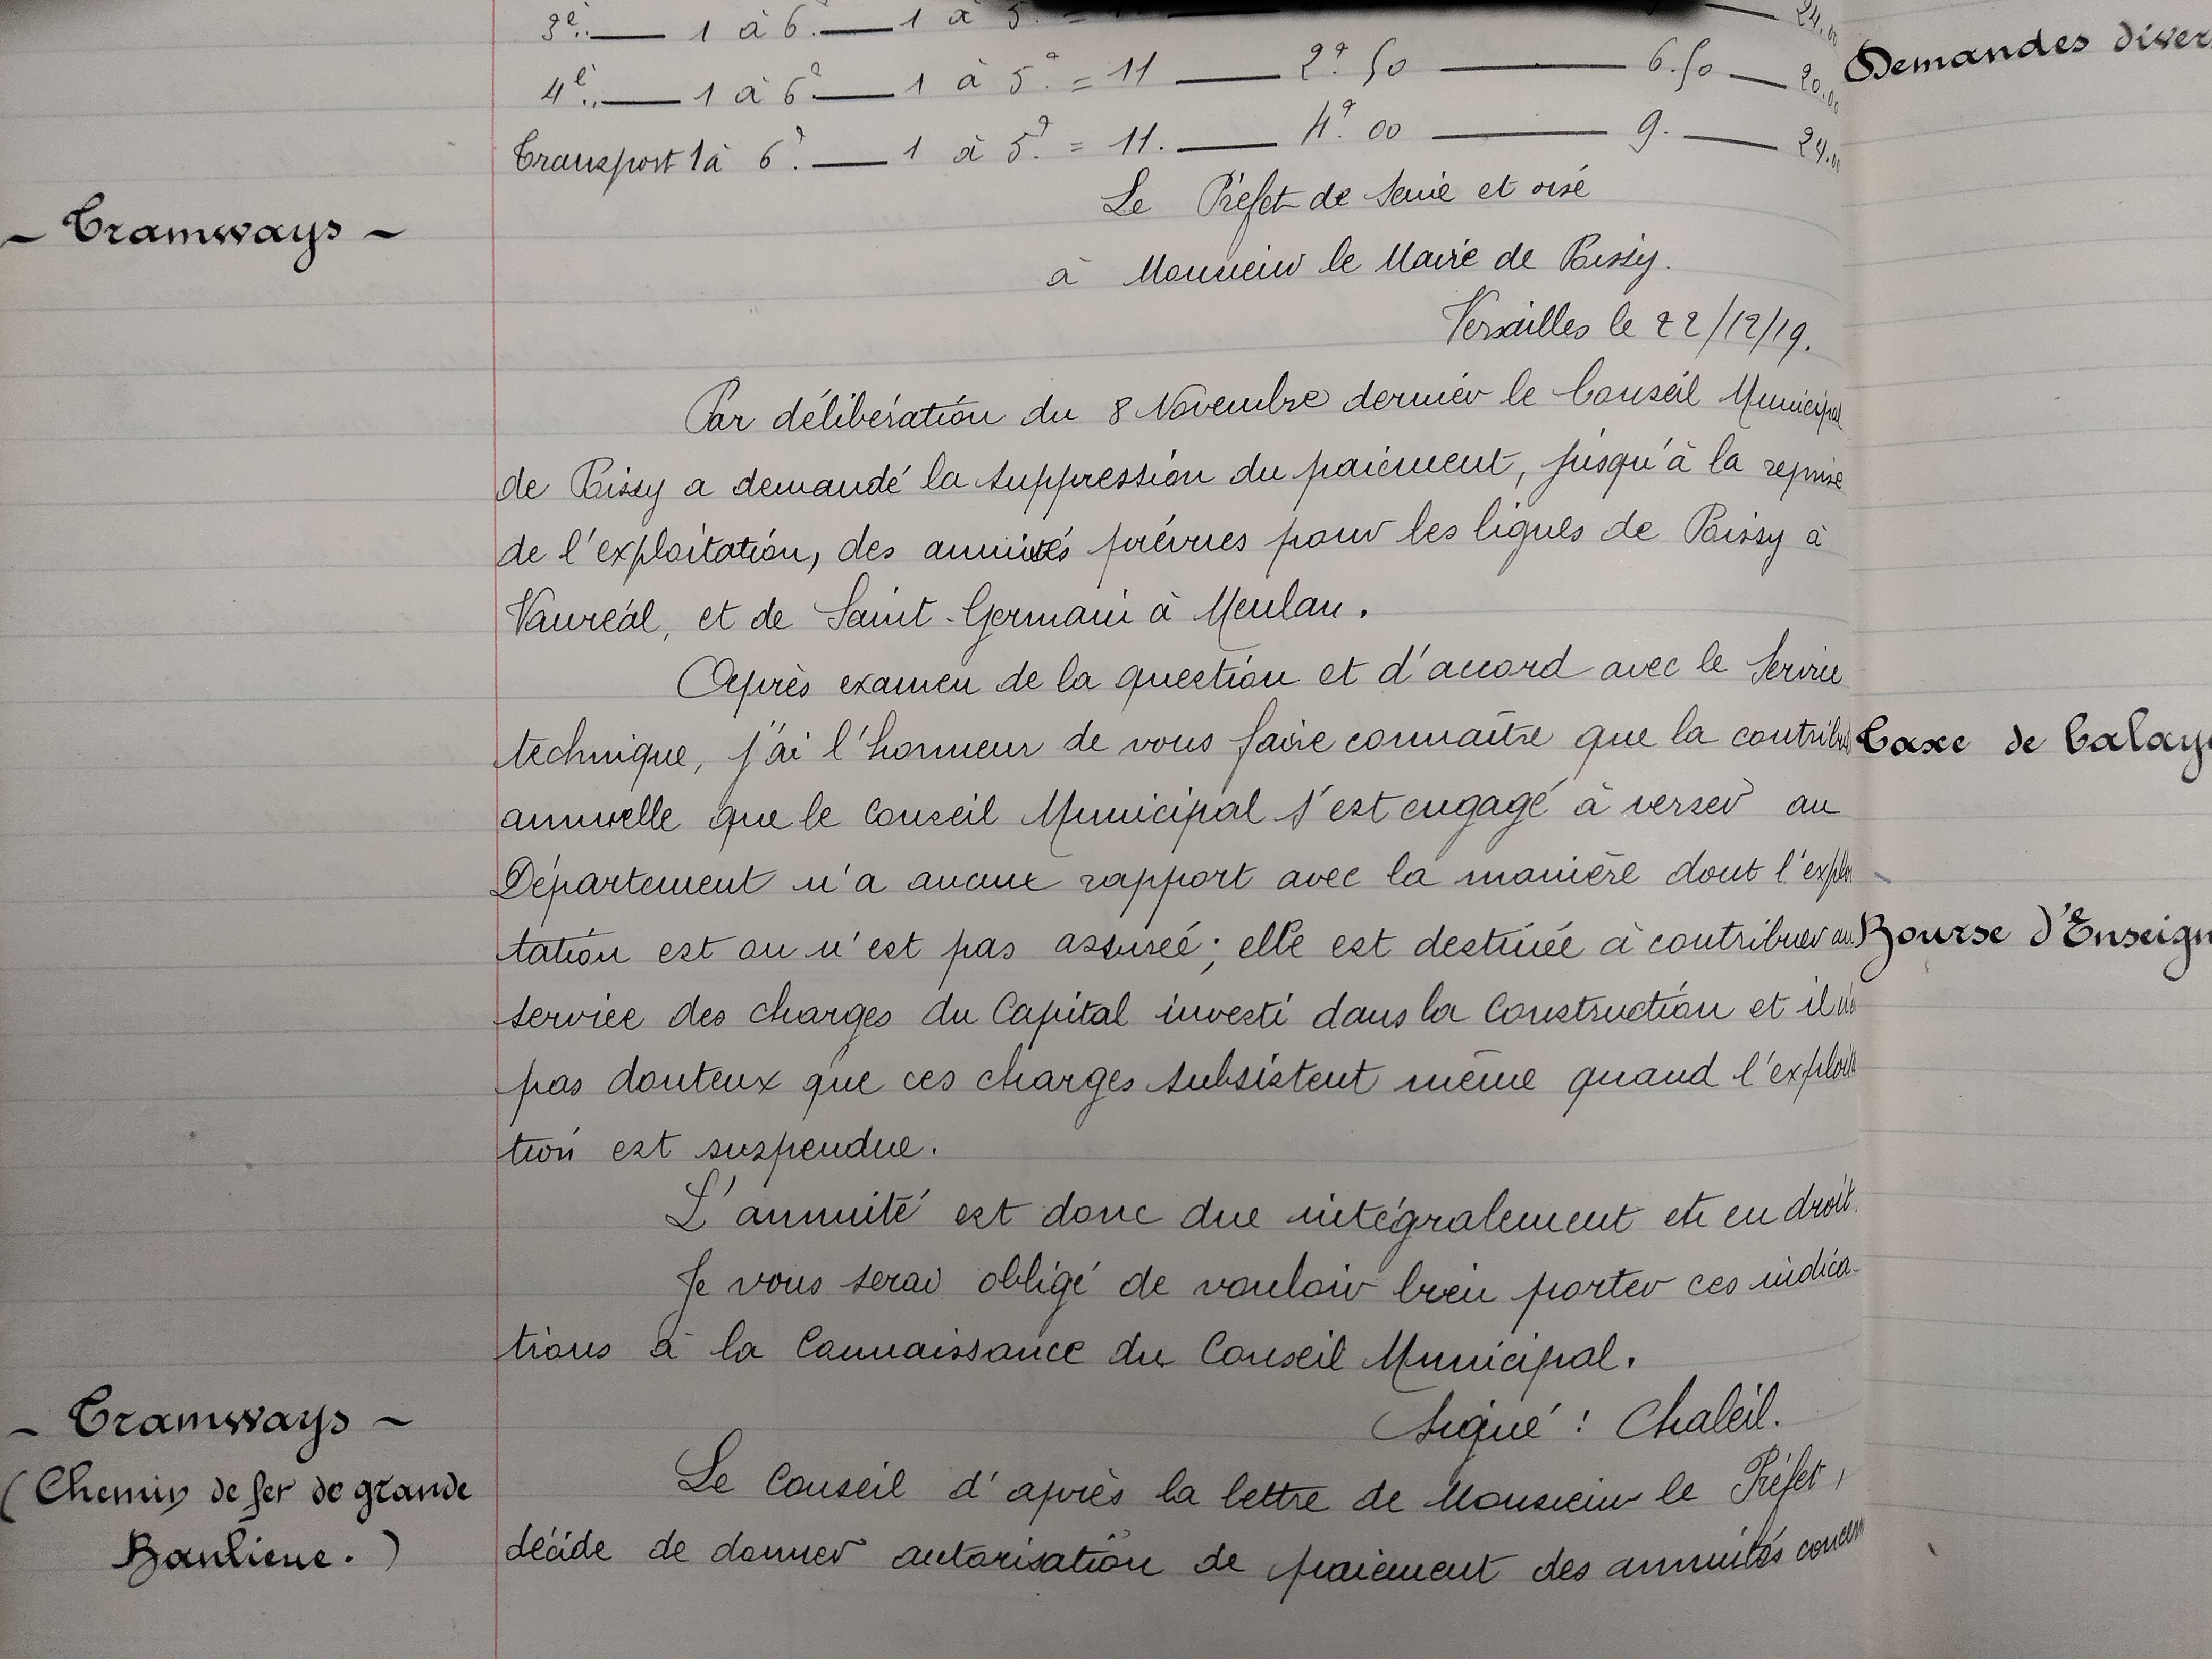 3e.. — 1 à 6. — 1 à 5. =
4e.. — 1 à 6? — 1 à 5? = 11 — 2? 50 — 6.50 — 20.00
Transport 1 à 6? — 1 à 5? = 11. — 4? 00 — 9. — 24.00
Le Préfet de Seine et oise
à Monsieur le Maire de Poissy.
Versailles le 22/12/19.
- Tramways -
Par délibération du 8 Novembre dernier le Conseil Municipal
de Poissy a demandé la suppression du paiement, jusqu'à la reprise
de l'exploitation, des annuités prévues pour les lignes de Poissy à
Vauréal, et de Saint-Germain à Meulan.
Après examen de la question et d'accord avec le Service
technique, j'ai l'honneur de vous faire connaître que la contribu
annuelle que le Conseil Municipal s'est engagé à verser au
Département n'a aucun rapport avec la manière dont l'exploi
tation est ou n'est pas assurée; elle est destinée à contribuer au
service des charges du Capital investi dans la Construction et il n'
pas douteux que ces charges subsistent même quand l'exploita
tion est suspendue.
L'annuité est donc due intégralement et en droit.
Je vous serai obligé de vouloir bien porter ces indica-
tions à la Connaissance du Conseil Municipal.
Signé : Chaleil.
- Tramways -
(Chemin de fer de grande
Banlieue.)
Le Conseil d'après la lettre de Monsieur le Préfet,
décide de donner autorisation de paiement des annuités concern
Demandes diver
Taxe de Balay
Bourse d'Enseign